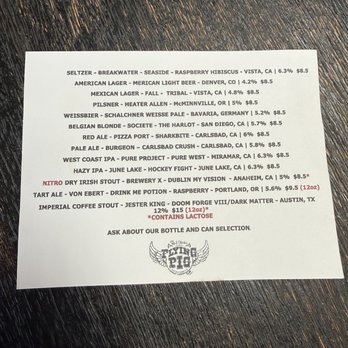 SELTZER - BREAKWATER - SEASIDE - RASPBERRY HIBISCUS - VISTA, CA | 6.3% $8.5
AMERICAN LAGER - MERICAN LIGHT BEER - DENVER, CO | 4.2% $8.5
MEXICAN LAGER - FALL - TRIBAL - VISTA, CA | 4.8% $8.5
PILSNER - HEATER ALLEN - McMINNVILLE, OR | 5% $8.5
WEISSBIER - SCHALCHNER WEISSE PALE - BAVARIA, GERMANY | 5.2% $8.5
BELGIAN BLONDE - SOCIETE - THE HARLOT - SAN DIEGO, CA | 5.7% $8.5
RED ALE - PIZZA PORT - SHARKBITE - CARLSBAD, CA | 6% $8.5
PALE ALE - BURGEON - CARLSBAD CRUSH - CARLSBAD, CA | 5.8% $8.5
WEST COAST IPA - PURE PROJECT - PURE WEST - MIRAMAR, CA | 6.3% $8.5
HAZY IPA - JUNE LAKE - HOCKEY FIGHT - JUNE LAKE, CA | 6.3% $8.5
NITRO DRY IRISH STOUT - BREWERY X - DUBLIN MY VISION - ANAHEIM, CA | 5% $8.5*
TART ALE - VON EBERT - DRINK ME POTION - RASPBERRY - PORTLAND, OR | 5.6% $9.5 (12oz)
IMPERIAL COFFEE STOUT - JESTER KING - DOOM FORGE VIII/DARK MATTER - AUSTIN, TX
12% $15 (12oz)*
*CONTAINS LACTOSE
ASK ABOUT OUR BOTTLE AND CAN SELECTION.
FLYING
PIG